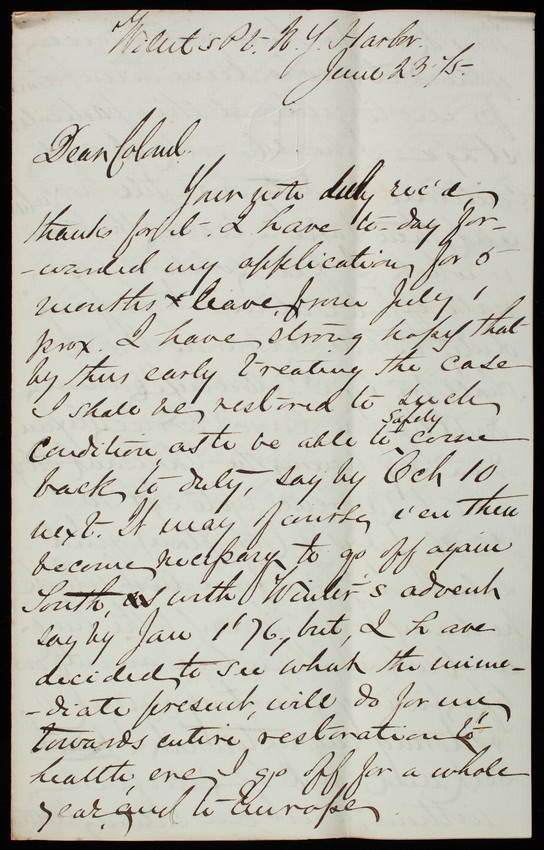 Willet's Pt. N. Y. Harbor.
June 23 75
Dear Colonel.
Your note duly rec'd,
thanks for it. I have to-day for-
-warded my application, for 5
months leave, from July 1
prox. I have strong hopes that
by thus early treating the case
I shall be restored to such
condition, as to be able to safely come
back to duty, say by Oct 10
next. It may of course, even then
become necessary to go off again
South, with Winter's advent
say by Jan 1 '76, but, I have
decided to see what the imme-
-diate present, will do for me
towards entire, restoration to
health, ere, I go off for a whole
year, and to Europe